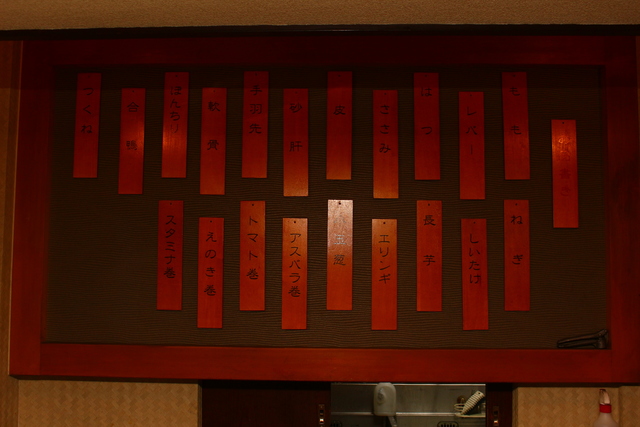 もも
レバー
はつ
ささみ
皮
砂肝
手羽先
軟骨
ぼんちり
合鴨
つくね
ねぎ
しいたけ
長芋
エリンギ
アスパラ巻
トマト巻
えのき巻
スタミナ巻